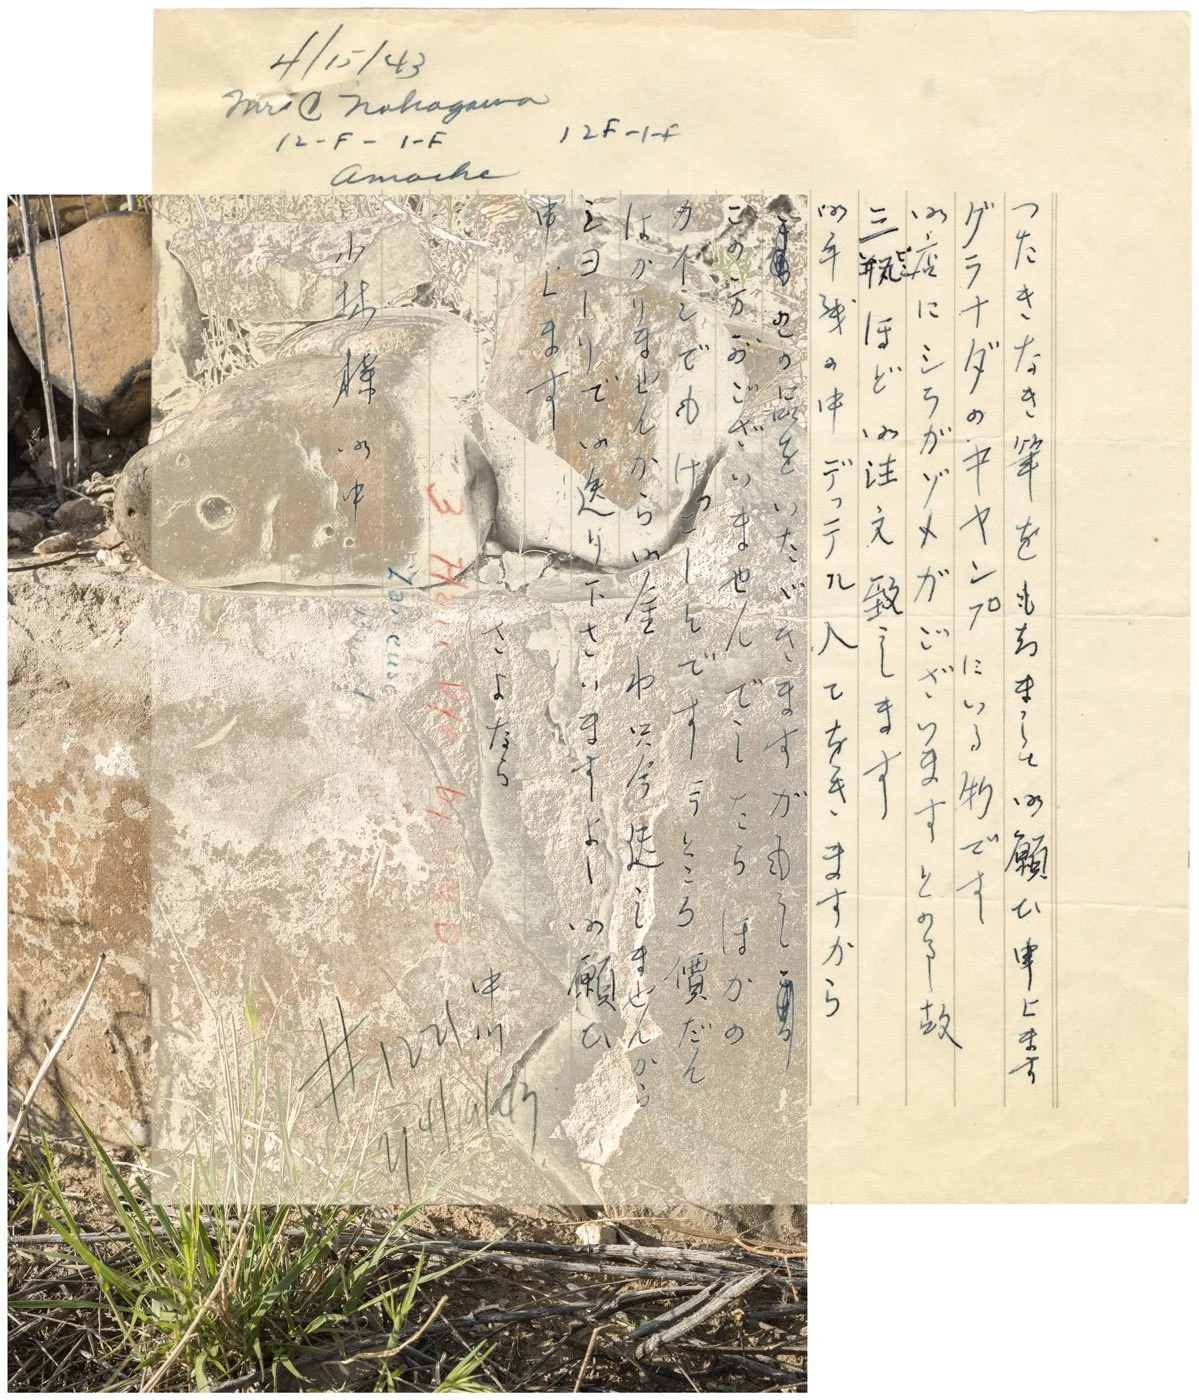 4/15/43
Mrs C Nakagawa
12-F-1-F 12F-1-F
Amache
つたきなき筆をもちましてお願ひ申上ます
グラナダのキャンプにいる物です
お店にシラガゾメがございますとの事故
三瓶ほどお注文致します
お手紙の中 デッテル入てをきますから
この品をいたゞきますがもし
この方がございませんでしたらほかの
カインでもけっこーです 今ところ價だん
はかりませんからお金わ只今送しませんから
シヨーリでお送り下さいますよーお願ひ
申します
さよなら
中川
小林様 お中
3 Hair Dye by
Yaneuse
#1221
4/19/43